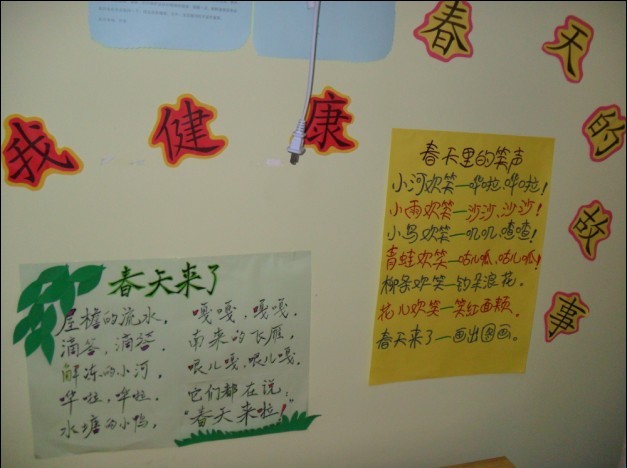 春天的故事
我健康
春天里的笑声
小河欢笑—哗啦、哗啦!
小雨欢笑—沙沙、沙沙!
小鸟欢笑—叽叽、喳喳!
青蛙欢笑—咕儿呱、咕儿呱!
柳条欢笑—钓朵浪花。
花儿欢笑—笑红面颊。
春天来了—画出图画。
春天来了
屋檐的流水，
滴答，滴答．
解冻的小河，
哗啦，哗啦．
水塘的小鸭，
嘎嘎，嘎嘎．
南来的飞雁，
哏儿嘎，哏儿嘎．
它们都在说：
“春天来啦！”